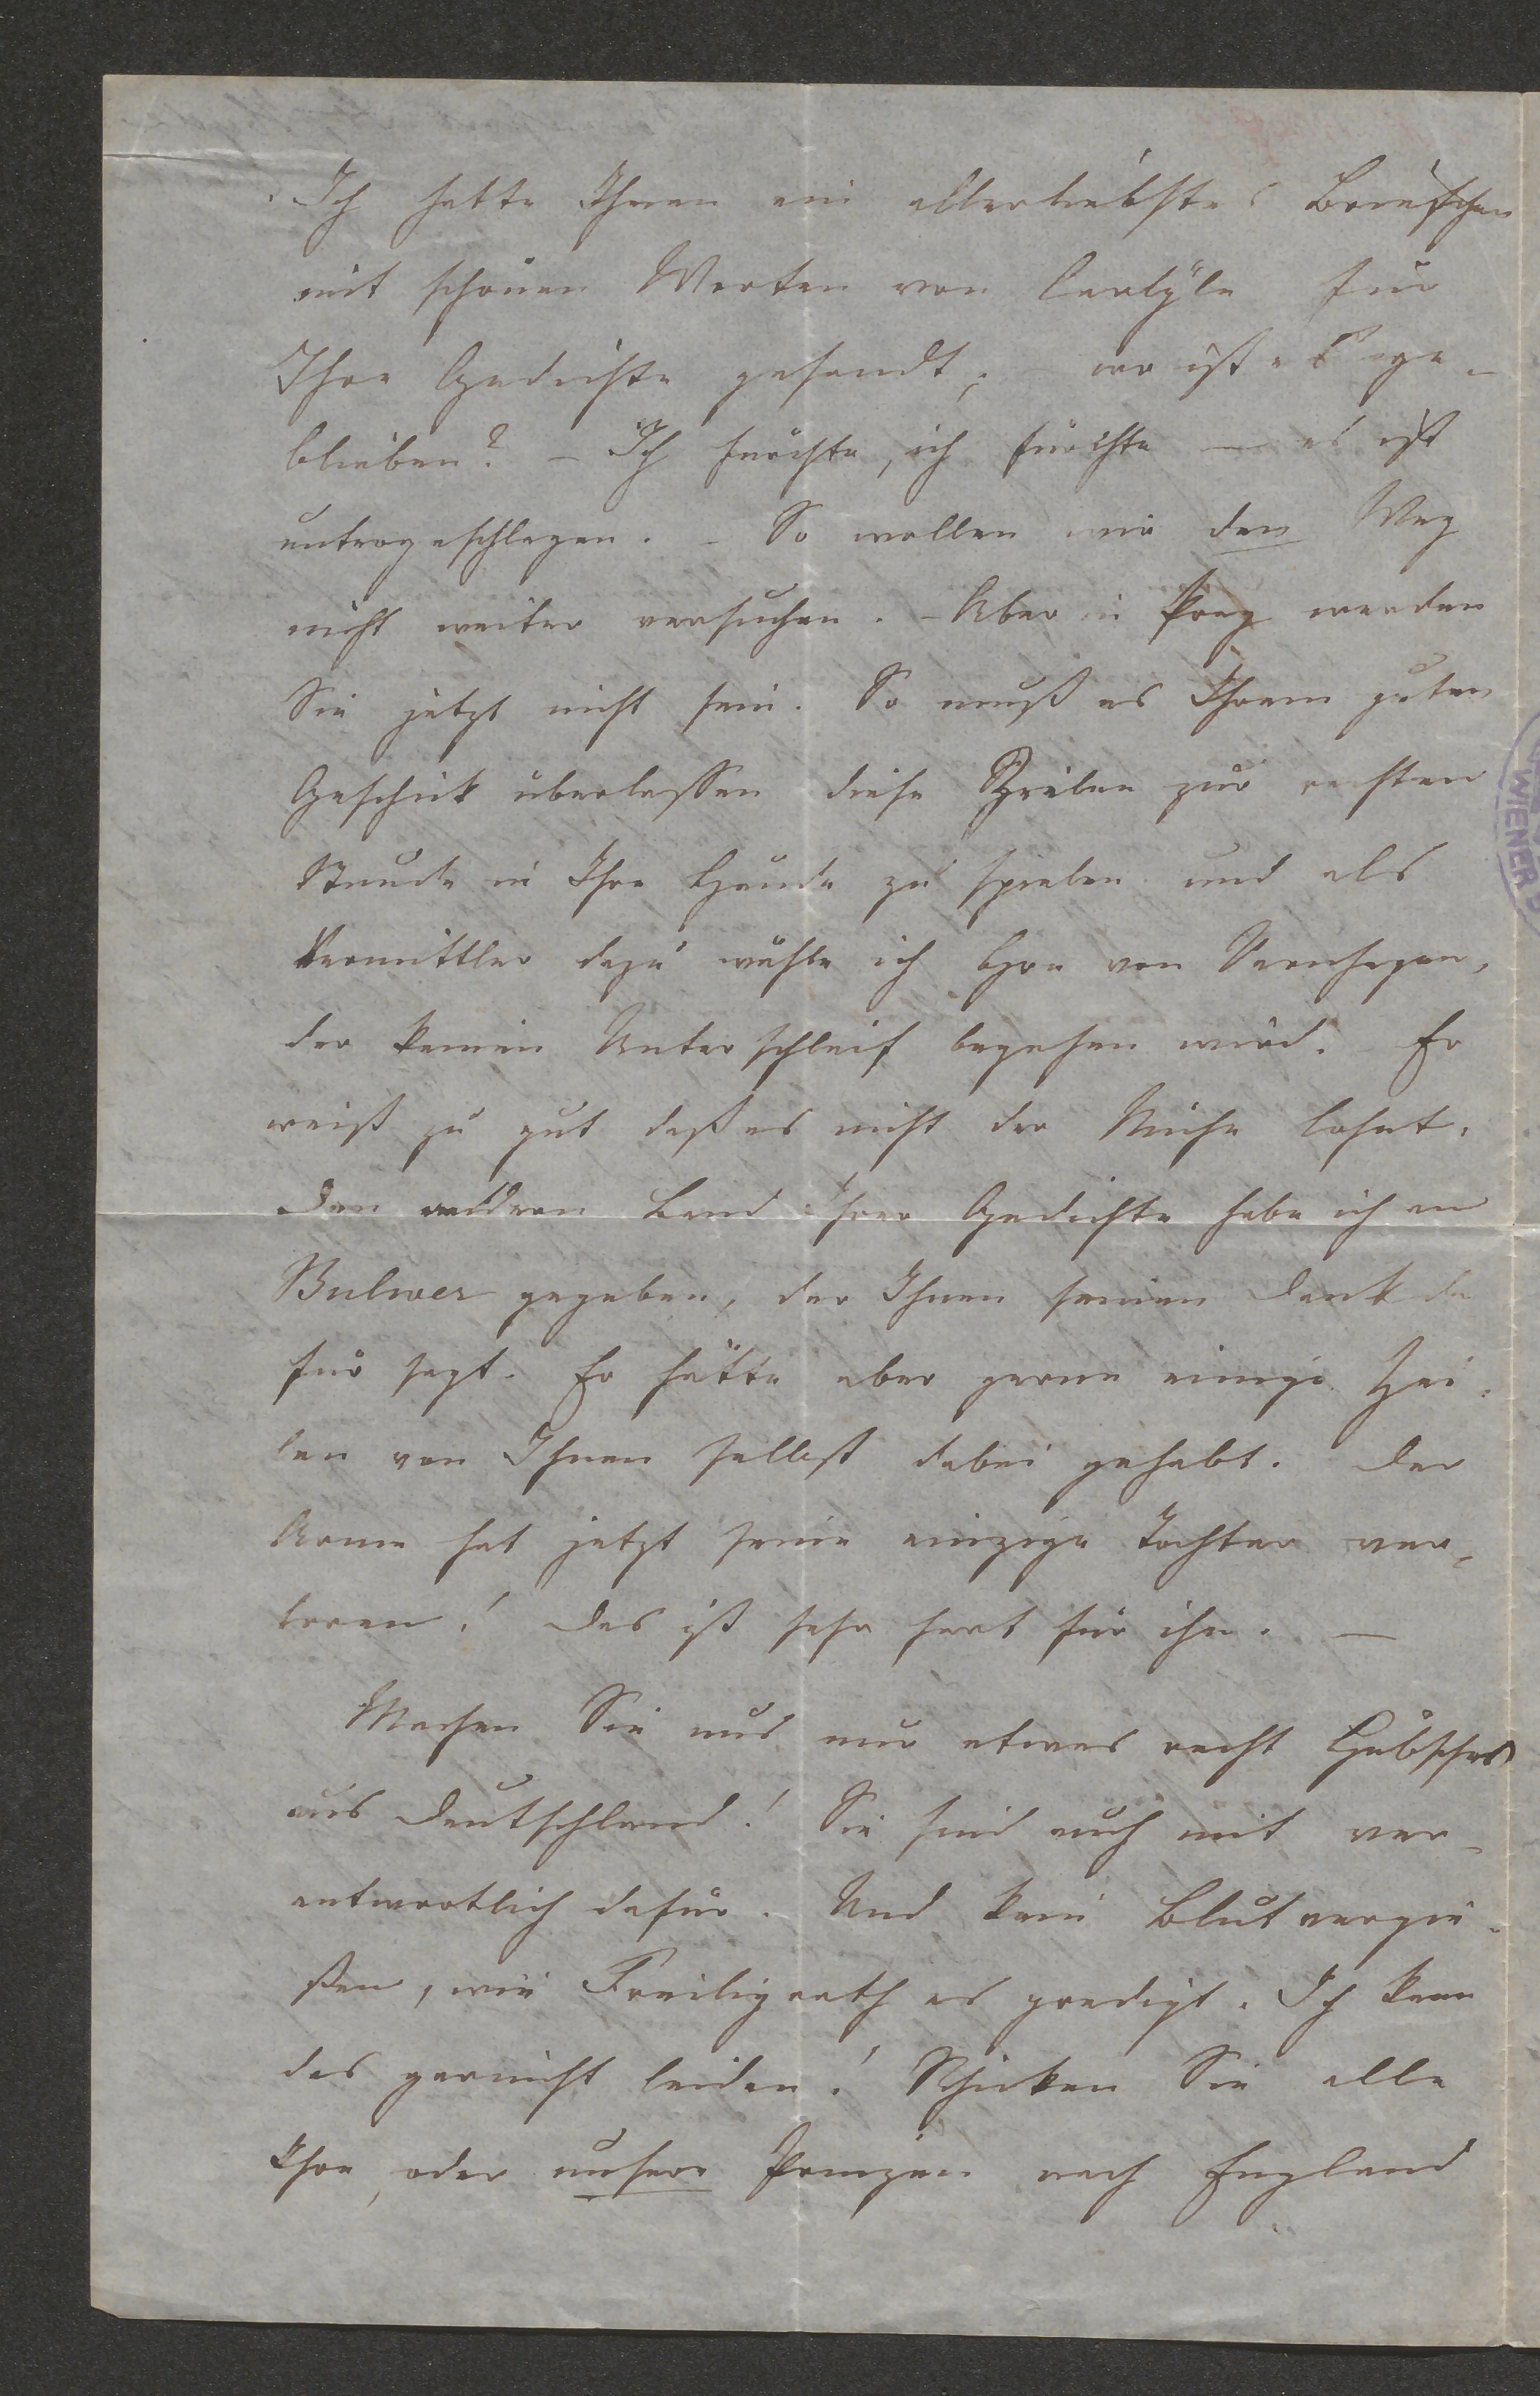 Ich hatte Ihnen ein allerliebstes Briefchen
mit schönen Worten von Carlÿle für
Ihre Gedichte gesandt; – wo ist es ge-
blieben? – Ich fürchte, ich fürchte – es ist
untergeschlagen. – So wollen wir den Weg
nicht weiter versuchen. – Aber in Prag werden
Sie jetzt nicht sein. So muß es Ihrem guten
Geschick überlassen diese Zeilen zur rechten
Stunde in Ihre Hände zu spielen und als
Vermittler dazu wähle ich Hrn von Varnhagen,
der keinen Unterschleif begehen wird. Er
weiß zu gut daß es nicht der Mühe lohnt.
Den andren Band Ihrer Gedichte habe ich an
Bulwer gegeben, der Ihnen seinen Dank da
für sagt. Er hätte aber gerne einige Zei-
len von Ihnen selbst dabei gehabt. Der
Arme hat jetzt seine einzige Tochter ver-
loren! Das ist sehr hart für ihn. –
Machen Sie uns nur etwas recht Hübsches
aus Deutschland! Sie sind auch mit ver-
antwortlich dafür. Und kein Blutvergie-
ßen, wie Freiligrath es predigt. Ich kann
das garnicht leiden! Schicken Sie alle
Ihre, oder unsere Prinzen nach England
WIENER